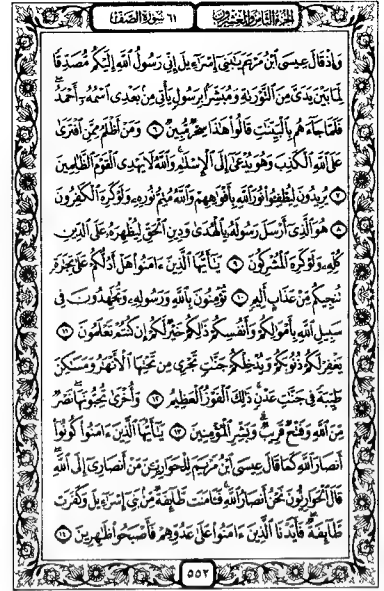 الجزء الثامن والعشرون
٦١ سورة الصف
وَإِذْ قَالَ عِيسَى ابْنُ مَرْيَمَ يَٰبَنِىٓ إِسْرَٰٓءِيلَ إِنِّى رَسُولُ ٱللَّهِ إِلَيْكُم مُّصَدِّقًا
لِّمَا بَيْنَ يَدَىَّ مِنَ ٱلتَّوْرَىٰةِ وَمُبَشِّرًۢا بِرَسُولٍ يَأْتِى مِنۢ بَعْدِى ٱسْمُهُۥٓ أَحْمَدُ
فَلَمَّا جَآءَهُم بِٱلْبَيِّنَٰتِ قَالُوا۟ هَٰذَا سِحْرٌ مُّبِينٌ ٦ وَمَنْ أَظْلَمُ مِمَّنِ ٱفْتَرَىٰ
عَلَى ٱللَّهِ ٱلْكَذِبَ وَهُوَ يُدْعَىٰٓ إِلَى ٱلْإِسْلَٰمِ وَٱللَّهُ لَا يَهْدِى ٱلْقَوْمَ ٱلظَّٰلِمِينَ
٧ يُرِيدُونَ لِيُطْفِـُٔوا۟ نُورَ ٱللَّهِ بِأَفْوَٰهِهِمْ وَٱللَّهُ مُتِمُّ نُورِهِۦ وَلَوْ كَرِهَ ٱلْكَٰفِرُونَ
٨ هُوَ ٱلَّذِىٓ أَرْسَلَ رَسُولَهُۥ بِٱلْهُدَىٰ وَدِينِ ٱلْحَقِّ لِيُظْهِرَهُۥ عَلَى ٱلدِّينِ
كُلِّهِۦ وَلَوْ كَرِهَ ٱلْمُشْرِكُونَ ٩ يَٰٓأَيُّهَا ٱلَّذِينَ ءَامَنُوا۟ هَلْ أَدُلُّكُمْ عَلَىٰ تِجَٰرَةٍ
تُنجِيكُم مِّنْ عَذَابٍ أَلِيمٍ ١٠ تُؤْمِنُونَ بِٱللَّهِ وَرَسُولِهِۦ وَتُجَٰهِدُونَ فِى
سَبِيلِ ٱللَّهِ بِأَمْوَٰلِكُمْ وَأَنفُسِكُمْ ذَٰلِكُمْ خَيْرٌ لَّكُمْ إِن كُنتُمْ تَعْلَمُونَ ١١
يَغْفِرْ لَكُمْ ذُنُوبَكُمْ وَيُدْخِلْكُمْ جَنَّٰتٍ تَجْرِى مِن تَحْتِهَا ٱلْأَنْهَٰرُ وَمَسَٰكِنَ
طَيِّبَةً فِى جَنَّٰتِ عَدْنٍ ذَٰلِكَ ٱلْفَوْزُ ٱلْعَظِيمُ ١٢ وَأُخْرَىٰ تُحِبُّونَهَا نَصْرٌ
مِّنَ ٱللَّهِ وَفَتْحٌ قَرِيبٌ وَبَشِّرِ ٱلْمُؤْمِنِينَ ١٣ يَٰٓأَيُّهَا ٱلَّذِينَ ءَامَنُوا۟ كُونُوٓا۟
أَنصَارَ ٱللَّهِ كَمَا قَالَ عِيسَى ٱبْنُ مَرْيَمَ لِلْحَوَارِيِّـۧنَ مَنْ أَنصَارِىٓ إِلَى ٱللَّهِ
قَالَ ٱلْحَوَارِيُّونَ نَحْنُ أَنصَارُ ٱللَّهِ فَـَٔامَنَت طَّآئِفَةٌ مِّنۢ بَنِىٓ إِسْرَٰٓءِيلَ وَكَفَرَت
طَّآئِفَةٌ فَأَيَّدْنَا ٱلَّذِينَ ءَامَنُوا۟ عَلَىٰ عَدُوِّهِمْ فَأَصْبَحُوا۟ ظَٰهِرِينَ ١٤
٥٥٢